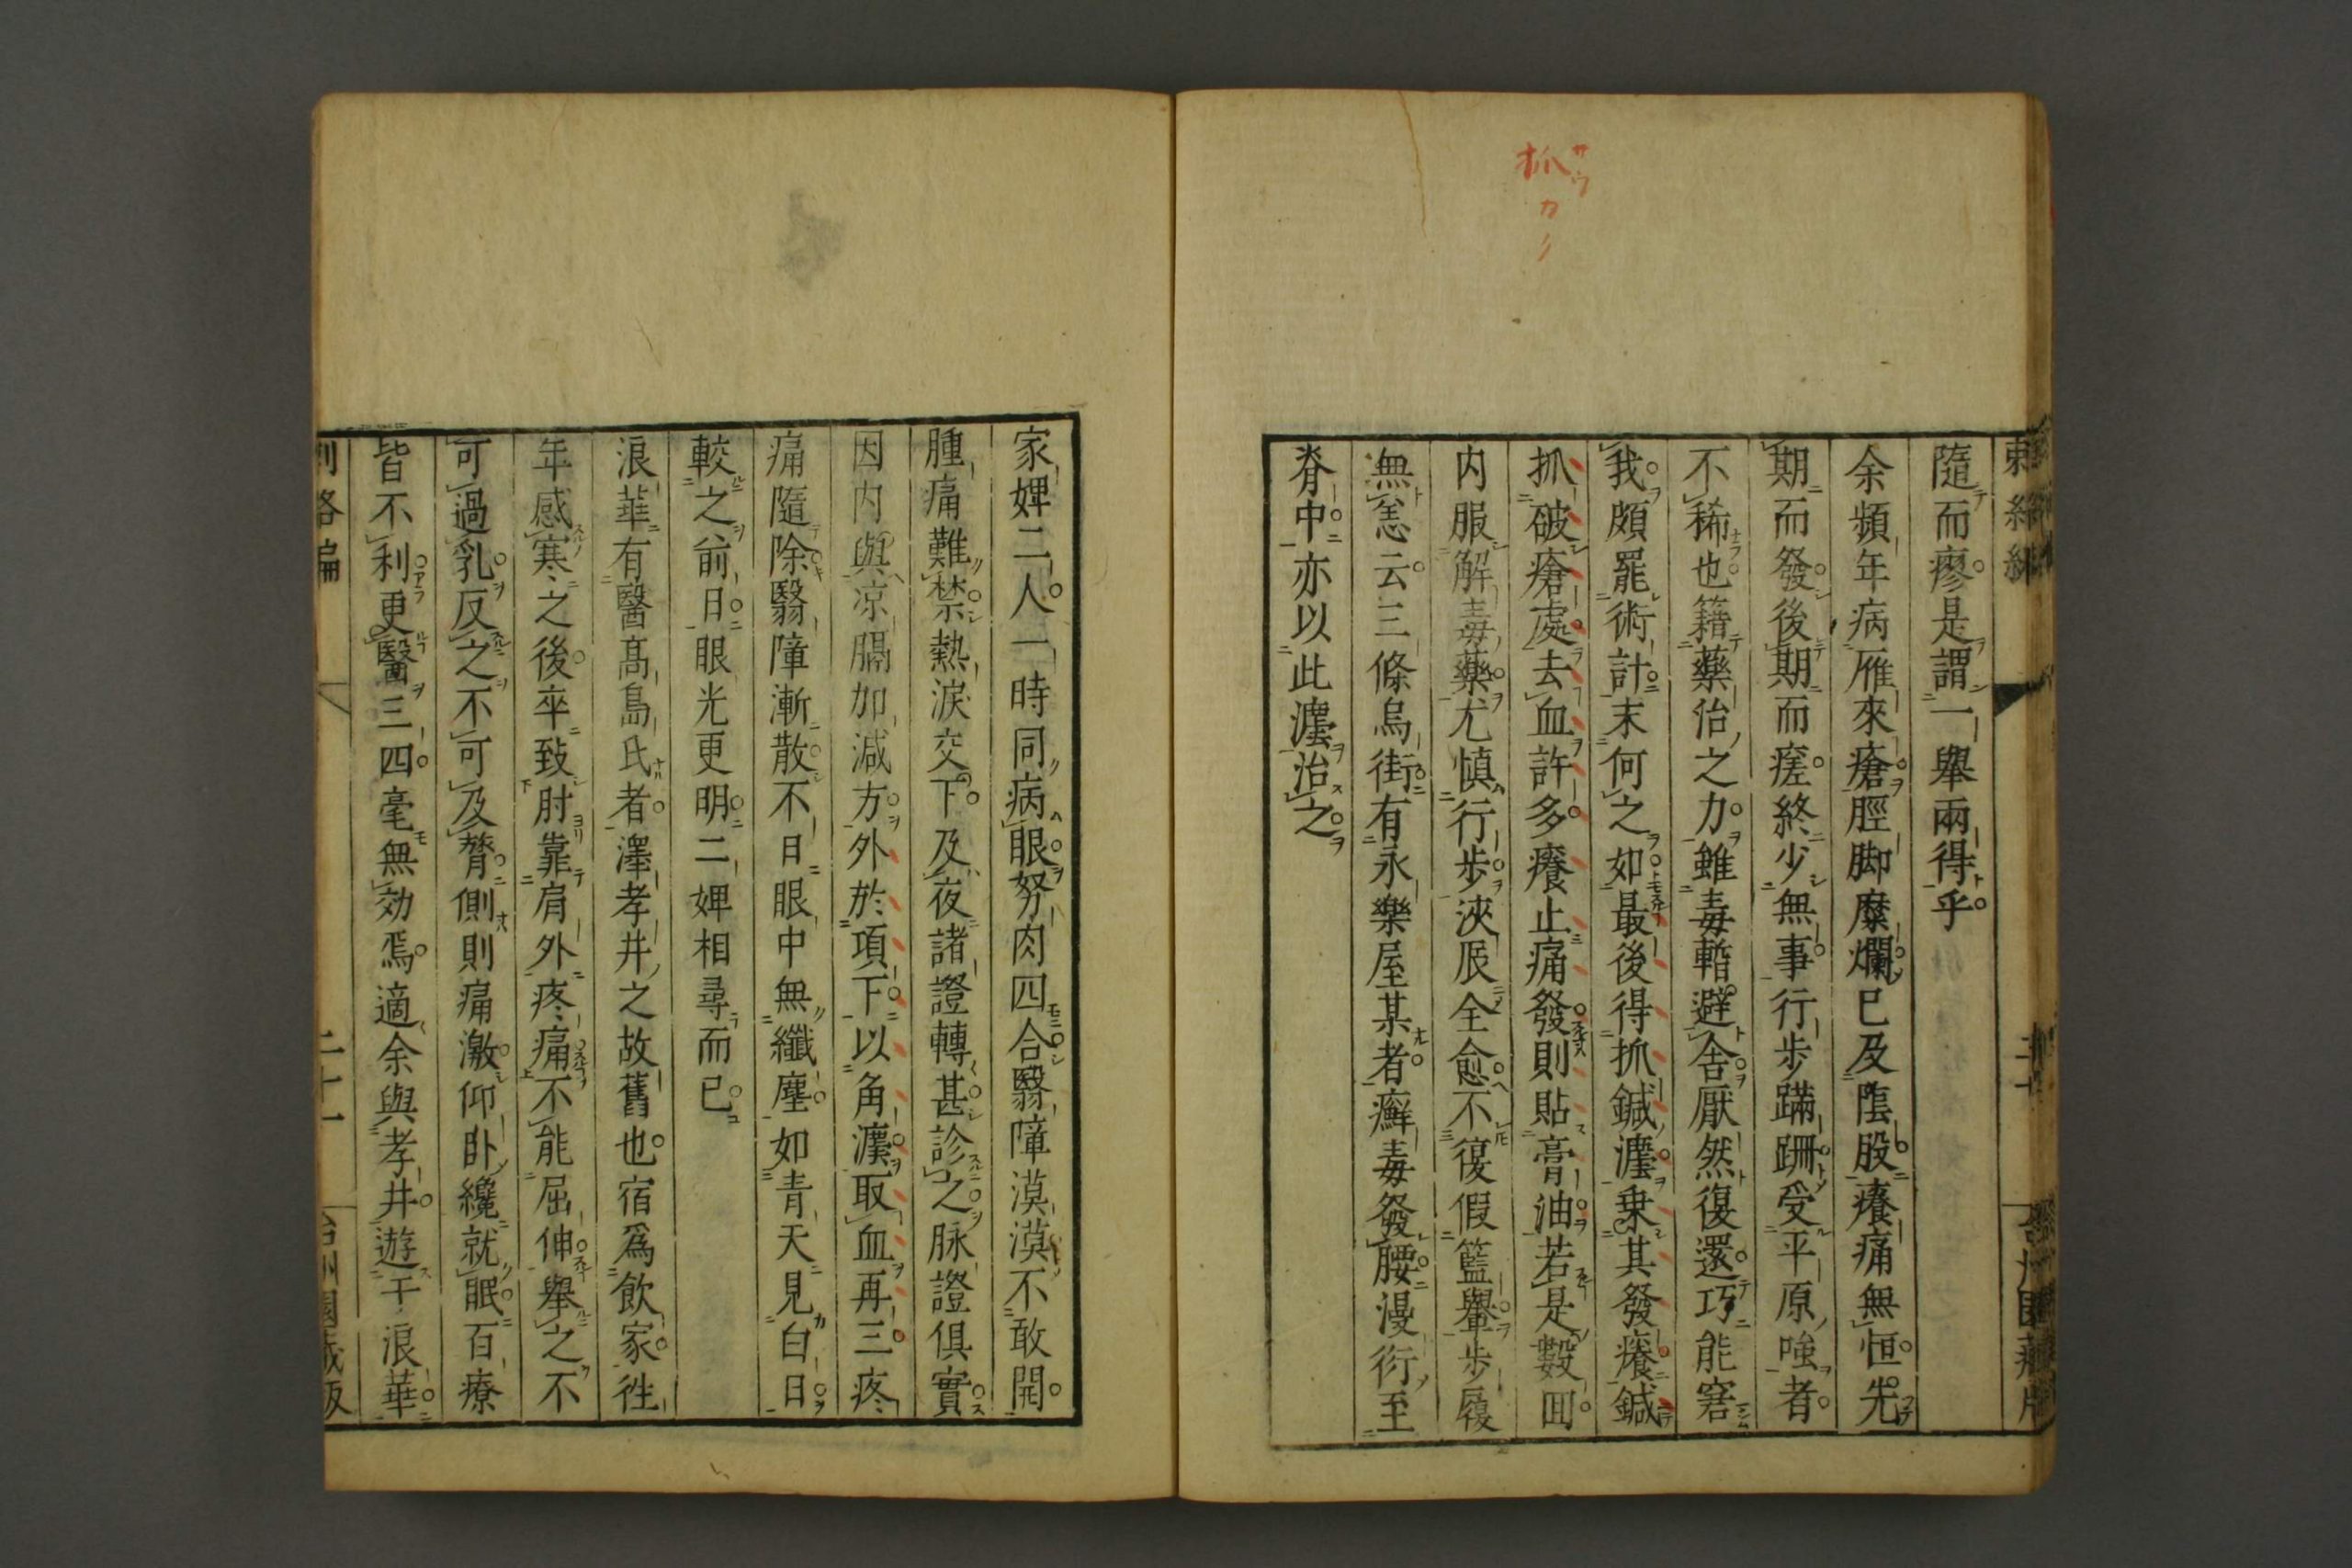 抓サウカク
刺絡編
隨而瘳是謂一舉兩得乎
余頻年病雁來瘡脛脚糜爛已及陰股癢痛無恒先
期而發後期而瘥終少無事行步蹣跚受平原嗤者
不稀也籍藥治之力雖毒暫避舍厭然復還巧能窘
我頗罷術計末何之如最後得抓鍼瀍乗其發癢鍼
抓破瘡處去血許多癢止痛發則貼膏油若是數回
内服解毒藥尤慎行步浹辰全愈不復假籃轝步履
無恙云三條烏街有永樂屋某者癬毒發腰漫衍至
脊中亦以此瀍治之
家婢二人一時同病眼努肉四合翳障漠漠不敢開
腫痛難禁熱淚交下及夜諸證轉甚診之脉證俱實
因内與凉膈加減方外於項下以角瀍取血再三疼
痛隨除翳障漸散不日眼中無纖塵如青天見白日
較之前日眼光更明二婢相尋而已
浪華有醫髙島氏者澤孝井之故舊也宿爲飲家徃
年感寒之後卒致肘靠肩外疼痛不能屈伸舉之不
可過乳反之不可及膂側則痛激仰卧纔就眠百療
皆不利更醫三四毫無効焉適余與孝井遊于浪華
刺絡編
二十一
台州園藏版